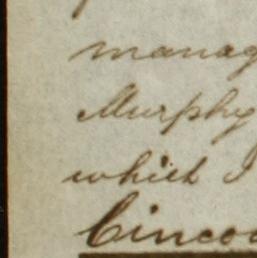 manag
Murphy
which I
Cincoo